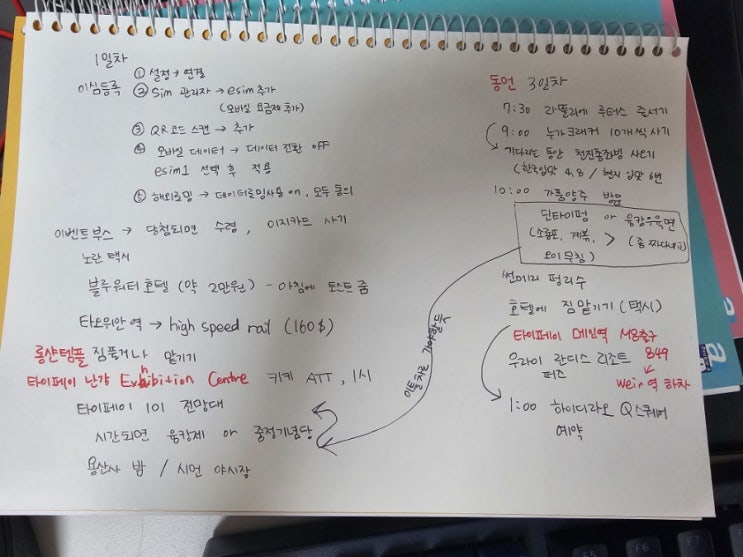 1일차
이심등록
① 설정 → 연결
② Sim 관리자 → esim 추가
(모바일 요금제 추가)
③ QR코드 스캔 → 추가
④ 모바일 데이터 → 데이터 전환 off
esim1 선택 후 적용
⑤ 해외로밍 → 데이터로밍사용 on, 모두 동의
이벤트부스 → 당첨되면 수령, 이지카드 사기
노란 택시
블루워터 호텔 (약 2만원) - 아침에 토스트 줌
타오위안 역 → high speed rail (160$)
룽산템플 짐풀거나 맡기기
타이페이 난강 Exhibition Centre 키키 ATT, 1시
타이페이 101 전망대
시간되면 융캉제 or 중정기념당
용산사 밤 / 시먼 야시장
이틀차로 가야할 듯
동먼 3일차
7:30 라뜰리에 루터스 줄서기
9:00 누가크래커 10개씩 사기
기다리는 동안 천진총좌빙 사먹기
(한국입맛 4,8 / 현지 입맛 6번
10:00 가품양주 방문
딘타이펑 or 융캉우육면
(소룡포, 계볶, > (좀 짜다네ㅠ)
오이무침)
썬메리 펑리수
호텔에 짐맡기기 (택시)
타이페이 메인역 M8출구
우라이 란디스 리조트 849
버스
weir역 하차
1:00 하이디라오 Q스퀘어
예약